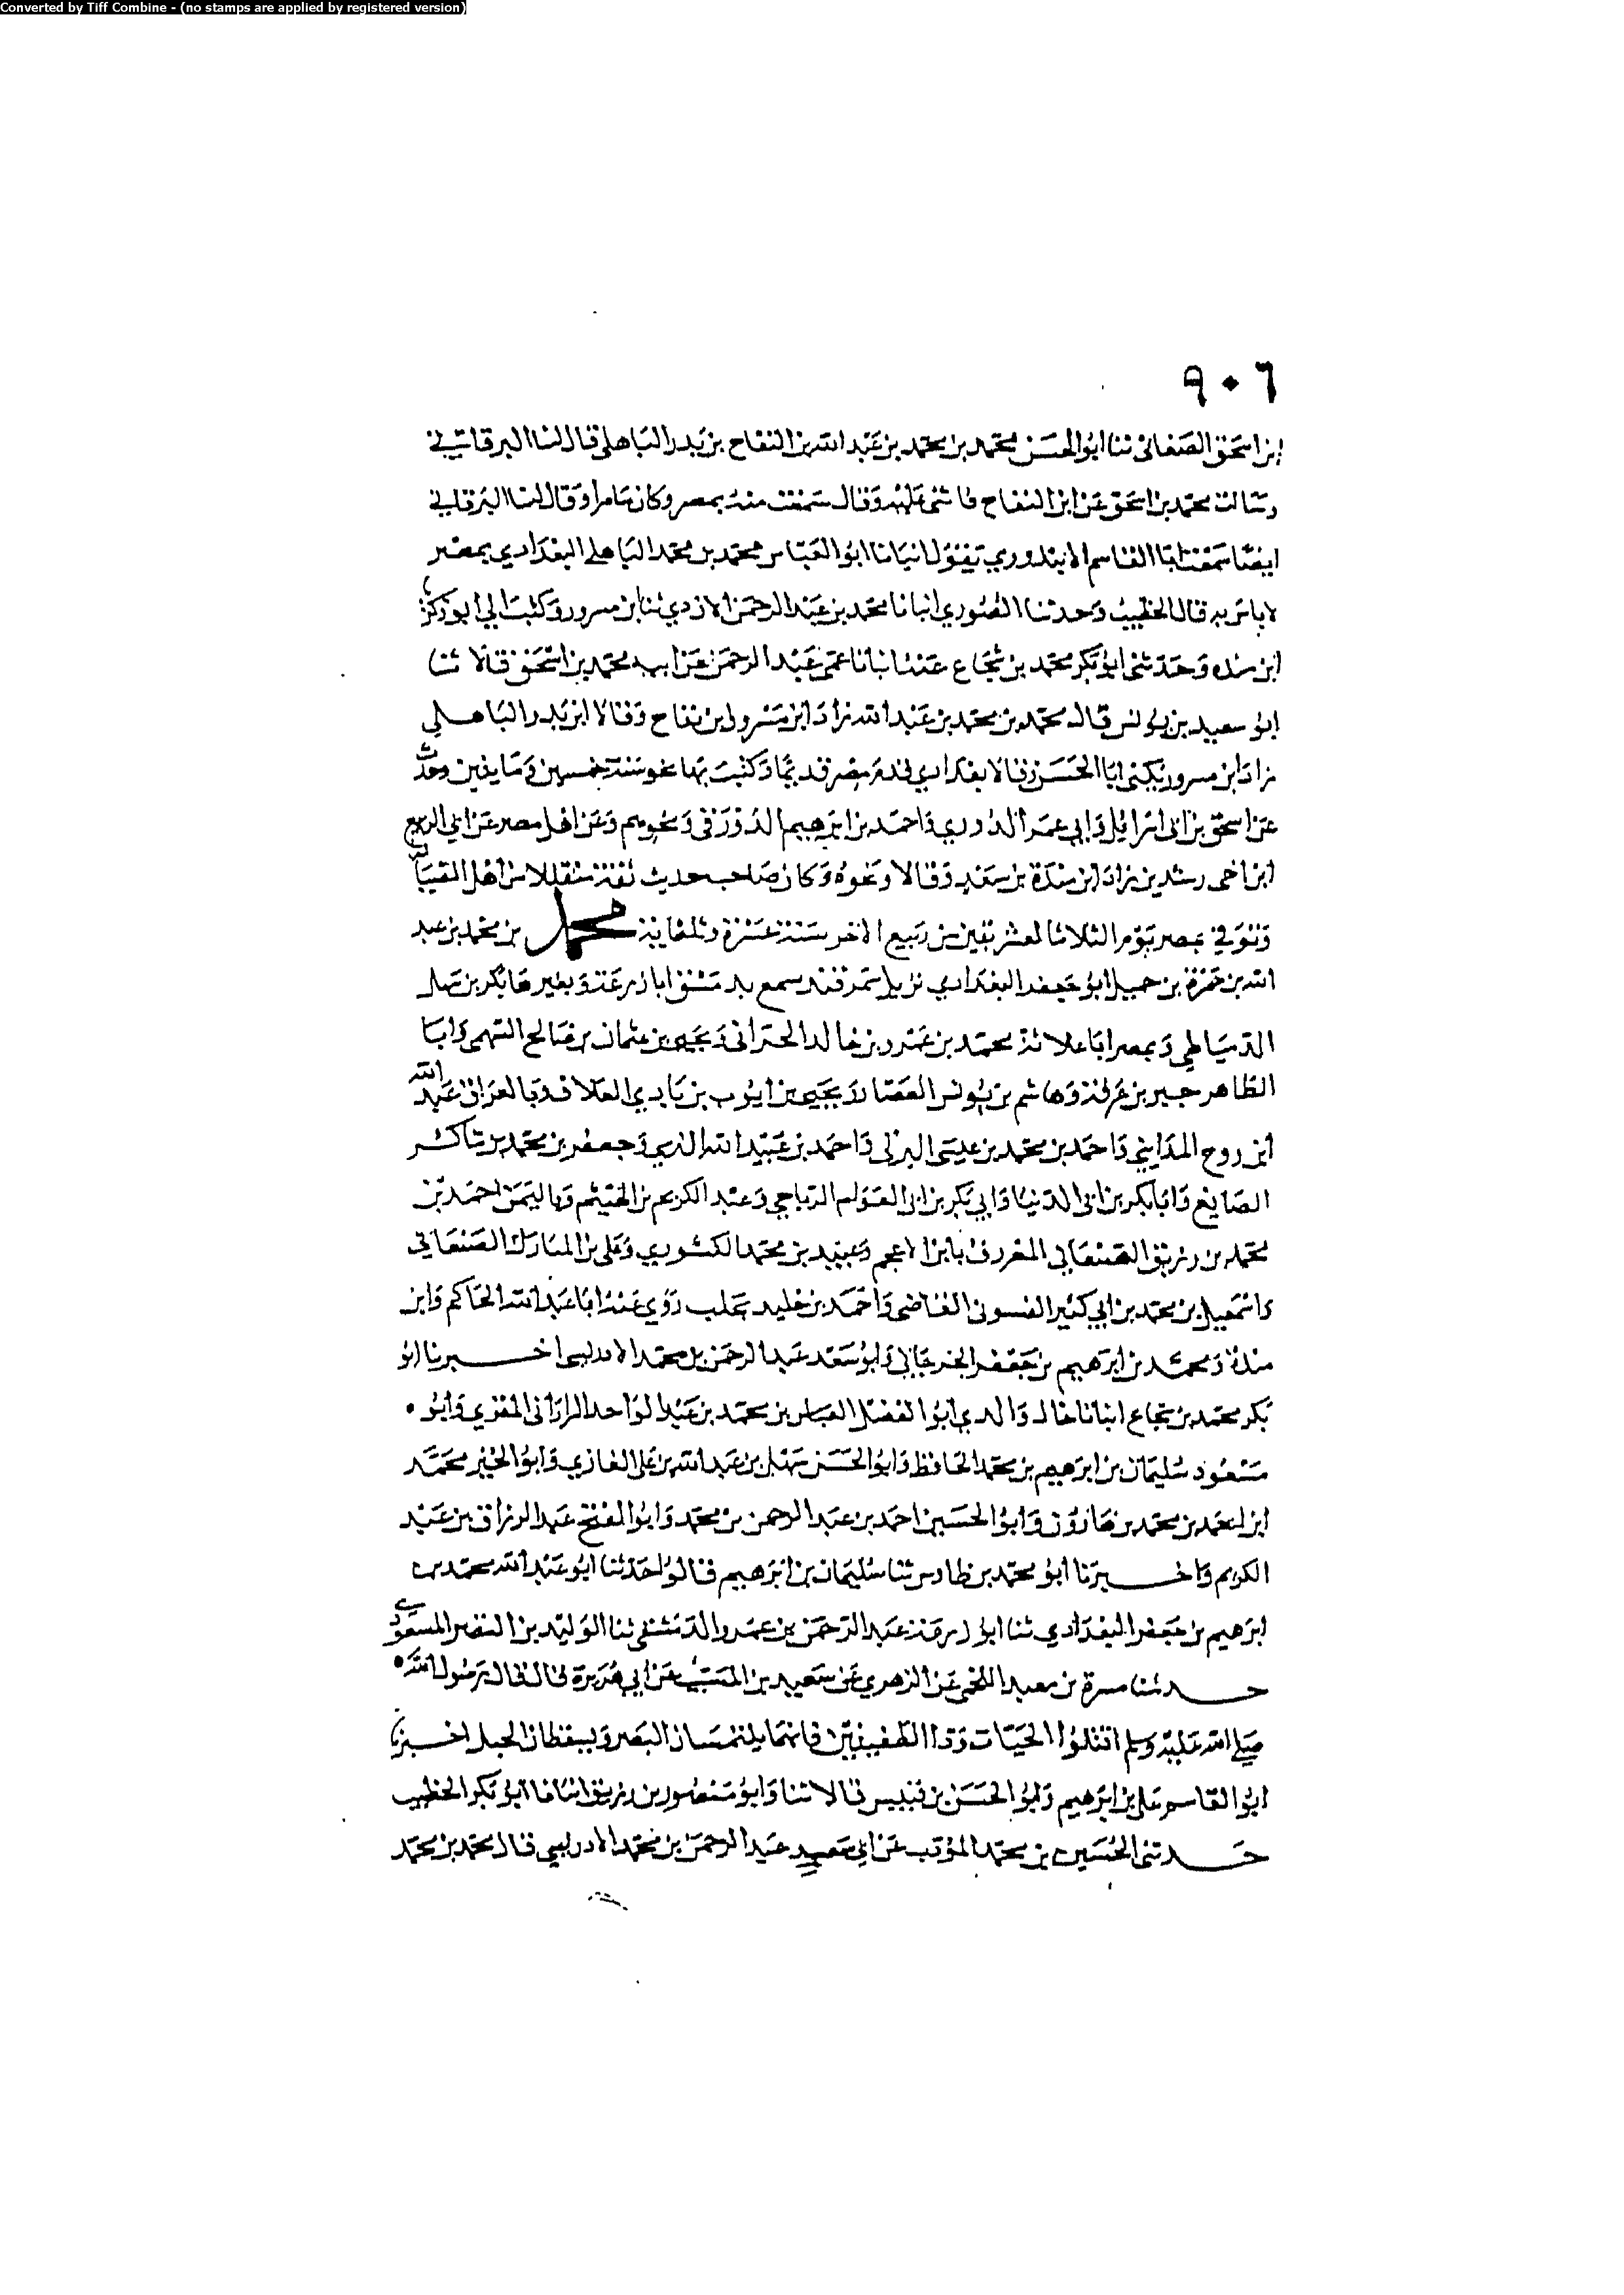 Converted by Tiff Combine - (no stamps are applied by registered version)
٩٠٦
ابن اسحق الصفار ثنا ابو الحسن محمد بن محمد بن عبد الله بن النفاح بن بدر الباهلي قال لنا البرقاني
وسالت محمد بن اسحق عن ابن النفاح فاثنى عليه وقال سمعت منه بمصر وكان وقال لنا البرقاني
ايضا سمعت ابا القاسم الابندوري يقول انبانا ابو العباس محمد بن محمد الباهلي البغدادي بمصر
لا باس به قال الخطيب وحدثنا الصوري انبانا محمد بن عبد الرحمن الازدي ثنا ابن مسرور وكتب الي ابو زكريا
ابن منده وحدثني ابو بكر محمد بن شجاع عنه انبانا عمي عبد الرحمن عن ابيه محمد بن اسحق قالا ثنا
ابو سعيد بن يونس قال محمد بن محمد بن عبد الله زاد ابن مسرور ابن نفاح وقالا ابن بدر الباهلي
زاد ابن مسرور يكنى ابا الحسن وقالا بغدادي قدم مصر قديما وكتبت بها نحو سنة خمسين ومايتين وحدث
عن اسحق بن ابي اسرايل وابي عمر الدوري واحمد بن ابرهيم الدورقي ونحوهم وعن اهل مصر عن ابي الربيع
ابن اخي رشدين زاد ابن مندة بن سعد وقالا ونحوه وكان صاحب حديث ثقة متقللا من اهل الصيانة
وتوفي بمصر يوم الثلاثا لعشر بقين من ربيع الاخر سنة عشرة وثلثماية محمد بن محمد بن عبد
الله بن حمزة بن جميل ابو جعفر البغدادي نزيل سمرقند سمع بدمشق ابا زرعة وبغيرها بكر بن سهل
الدمياطي وبمصر ابا علاثة محمد بن عمرو بن خالد الحراني ويحيى بن عثمان بن صالح السهمي وابا
الطاهر جبر بن عرفة وهاشم بن يونس العصار ويحيى بن ايوب بن بادي العلاف وبالعراق عبد الله
ابن روح المدايني واحمد بن محمد بن عيسى البرتي واحمد بن عبيد الله النرسي وجعفر بن محمد بن شاكر
الصايغ وابا بكر بن ابي الدنيا وابي بكر بن ابي العوام الرياحي وعبد الكريم بن الهيثم وباليمن احمد بن
محمد بن رزيق الصنعاني المعروف بابن الاعجم وعبيد بن محمد الكشوري وعلي بن المبارك الصنعاني
واسمعيل بن محمد بن ابي كثير الفسوي القاضي واحمد بن خليد بحلب روى عنه ابا عبد الله الحاكم وابن
مندة ومحمد بن ابرهيم بن جعفر الجرجاني وابو سعد عبد الرحمن بن محمد الادريسي اخبرنا ابو
بكر محمد بن شجاع انبانا خال والدي ابو الفضل العباس بن محمد بن عبد الواحد الراراني المقري وابو
مسعود سليمان بن ابرهيم بن محمد الحافظ وابو الحسن سهل بن عبد الله بن علي الغازي وابو الخير محمد
ابن احمد بن محمد بن هارون وابو الحسين احمد بن عبد الرحمن بن محمد وابو الفتح عبد الرزاق بن عبد
الكريم واخبرنا ابو محمد بن طاوس ثنا سليمان بن ابرهيم قالوا حدثنا ابو عبد الله محمد بن
ابرهيم بن جعفر البغدادي ثنا ابو زرعة عبد الرحمن بن عمرو الدمشقي ثنا الوليد بن النضر المسعودي
حدثنا مسرة بن معبد اللخمي عن الزهري عن سعيد بن المسيب عن ابي هريرة قال قال رسول الله
صلى الله عليه وسلم اقتلوا الحيات وذا الطفيتين فانهما يلتمسان البصر ويسقطان الحبل اخبرنا
ابو القاسم علي بن ابرهيم وابو الحسن بن قبيس قالا ثنا وابو منصور بن زريق انبانا ابو بكر الخطيب
حدثني الحسين بن محمد المؤدب عن ابي سعيد عبد الرحمن بن محمد الادريسي قال محمد بن محمد